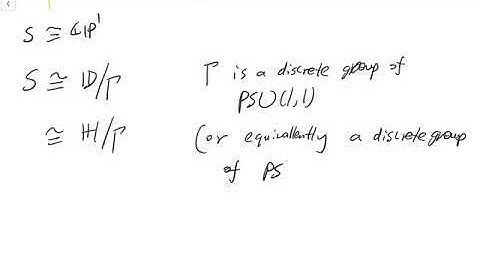 S ≅ ℂℙ¹
S ≅ 𝔻/Γ Γ is a discrete group of
PSU(1,1)
≅ ℍ/Γ (or equivallently a discrete group
of PS